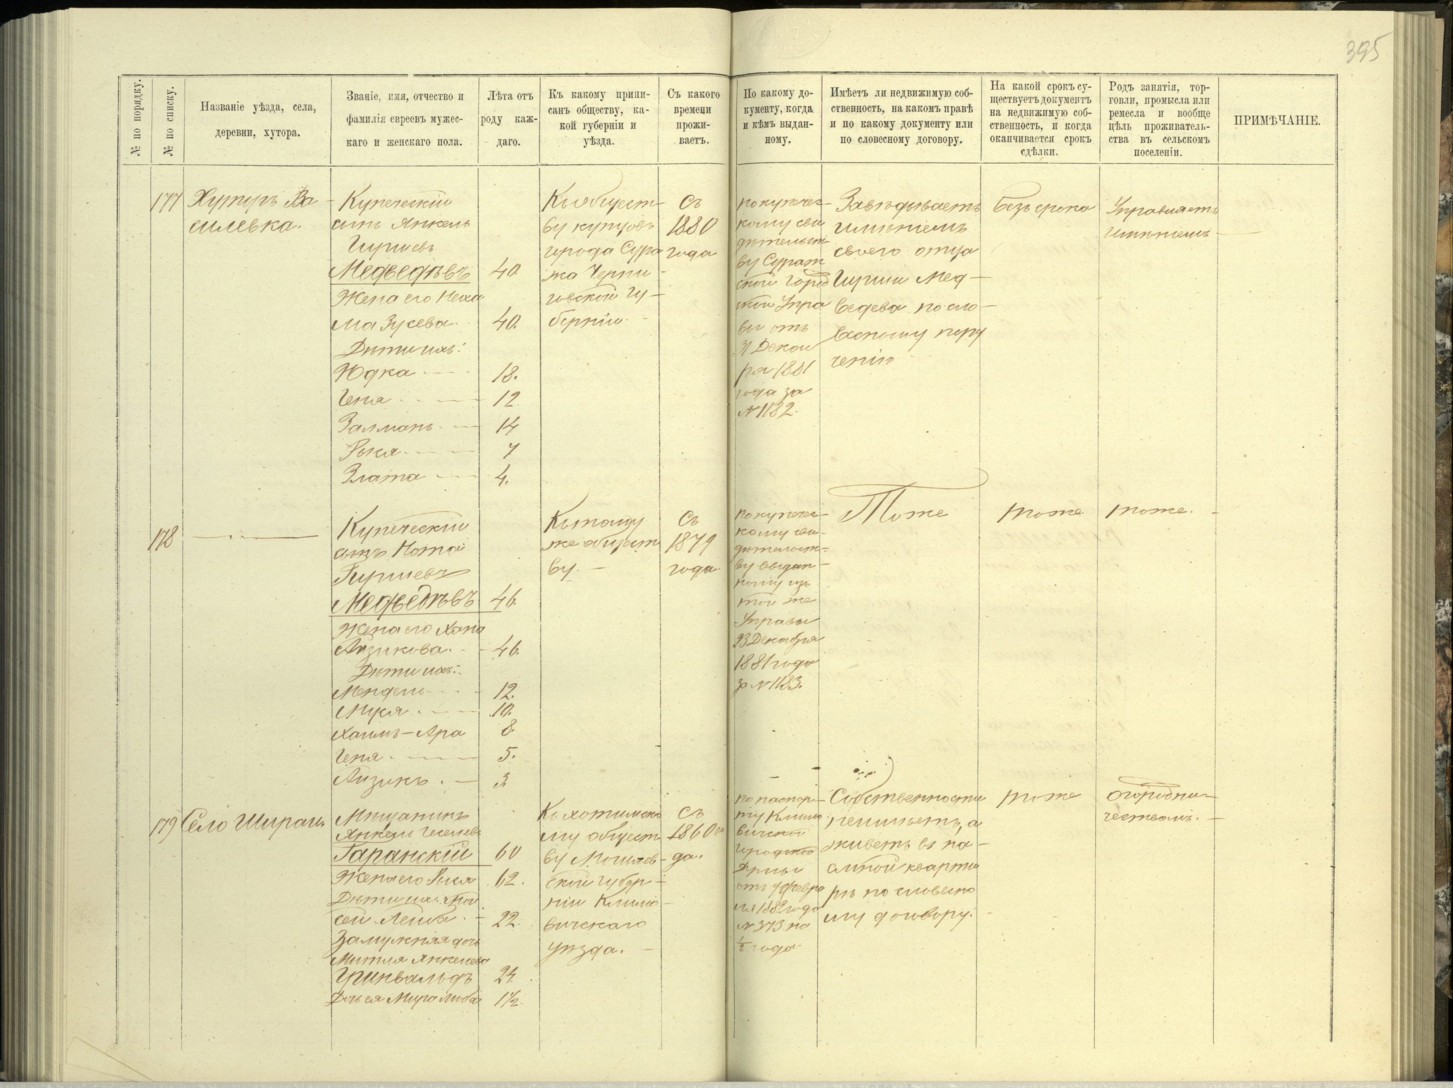 395
№ по порядку.
№ по списку.
Названіе уѣзда, села,
деревни, хутора.
Званіе, имя, отчество и
фамилія евреевъ мужес-
каго и женскаго пола.
Лѣта отъ
роду каж-
даго.
Къ какому припи-
санъ обществу, ка-
кой губерніи и
уѣзда.
Съ какого
времени
прожи-
ваетъ.
По какому до-
кументу, когда
и кѣмъ выдан-
ному.
Имѣетъ ли недвижимую соб-
ственность, на какомъ правѣ
и по какому документу или
по словесному договору.
На какой срокъ су-
ществуетъ документъ
на недвижимую соб-
ственность, и когда
оканчивается срокъ
сдѣлки.
Родъ занятія, тор-
говли, промысла или
ремесла и вообще
цѣль проживатель-
ства въ сельскомъ
поселеніи.
ПРИМѢЧАНІЕ.
177
Хуторъ Ва-
силевка.
Купеческій
сынъ Янкель
Гиршевъ
Медведѣвъ 40
Жена его Неха
ма Зусева 40
Дѣти ихъ:
Юдка 18.
Геня 12
Залманъ 14
Рыся 7
Злата 4.
Къ общест-
ву купцовъ
города Сура
жа Черни-
говской гу-
берніи
Съ
1880
года
по купечес-
кому сви
дѣтельст
ву Сураж
ской город
ской Упра
вы отъ
31 Декаб
ря 1881
года за
№ 1182.
Завѣдываетъ
имѣніемъ
своего отца
Гирши Мед-
ведева по сло-
весному пору
ченію
безъ срока
Управляетъ
имѣніемъ
178
Купеческій
сынъ Нотой
Гиршевъ
Медведѣвъ 46.
Жена его Хана
Айзикова. 46.
Дѣти ихъ:
Мендель 12.
10.
Хаимъ-Ара 8
Геня 5.
Айзикъ. 3
Къ тому
же общест
ву.
Съ
1879
года
по купечес-
кому сви-
дѣтельст-
ву выдан-
ному изъ
той же
Управы
23 Декабря
1881 года
за № 1183.
Тоже
тоже
тоже.
179
Село Ширки
Мѣщанинъ
Янкель
Гаранскій 60
Жена его Рыся 62.
Дѣти ихъ:
Лейба. 22
Замужняя дочь
Янкелева
Гринвальдъ 24
1½
Къ хотимско
му общест
ву Могилев-
ской губер-
ніи Климо-
вичскаго
уѣзда.
Съ
1860 го
да.
по паспор-
ту Климо
вичской
городской
Думы
отъ 4 февра
ля 1882 года
№ 373 на
½ года
Собственности
неимѣетъ, а
живетъ въ на-
емной кварти
рѣ по словесно
му договору.
тоже
огородни-
чествомъ.